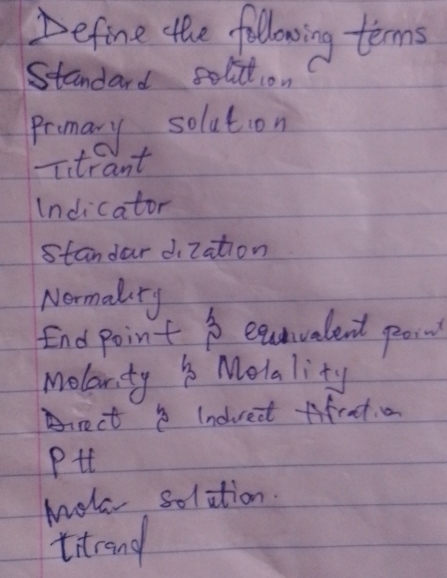 Define the following terms
Standard solution
Primary solution
Titrant
Indicator
Standardization
Normality
End point & equivalent point
Molarity & Molality
Direct & Indirect titration
PH
Molar solution.
titrand